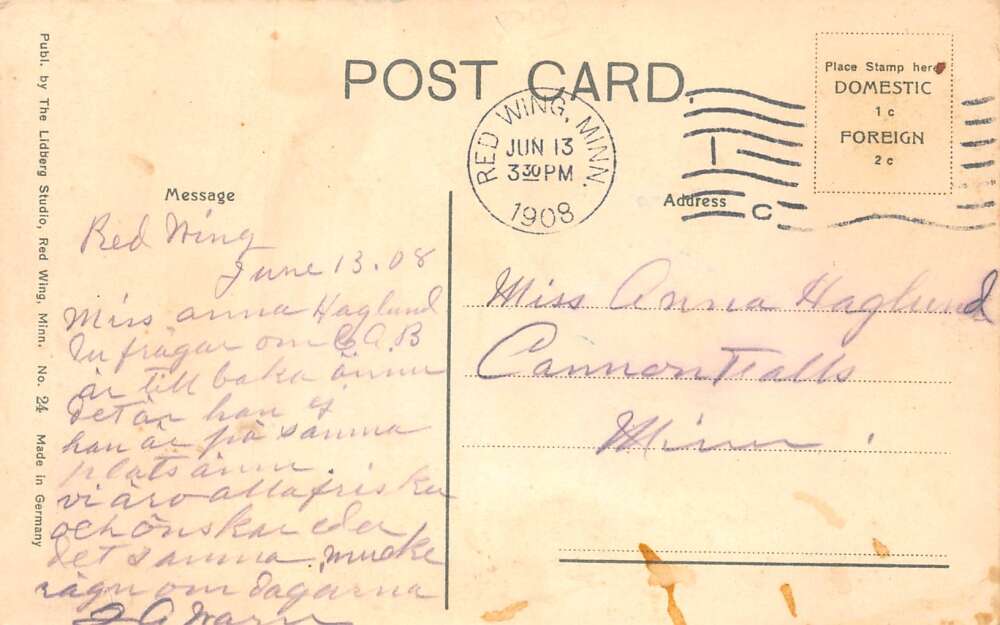 POST CARD
Publ. by The Lidberg Studio, Red Wing, Minn. No. 24 Made in Germany
Place Stamp here
DOMESTIC
1 c
FOREIGN
2 c
RED WING, MINN.
JUN 13
3 30 PM
1908
Message
Address
Red Wing
June 13.08
Miss Anna Haglund
Du frågar om C.A.B
är till baka ännu
det är han ej
han är på samma
plats ännu.
vi äro alla friska
och önskar eder
det samma. mucke
rägn om dagarna
Miss Anna Haglund
Cannon Falls
Minn.